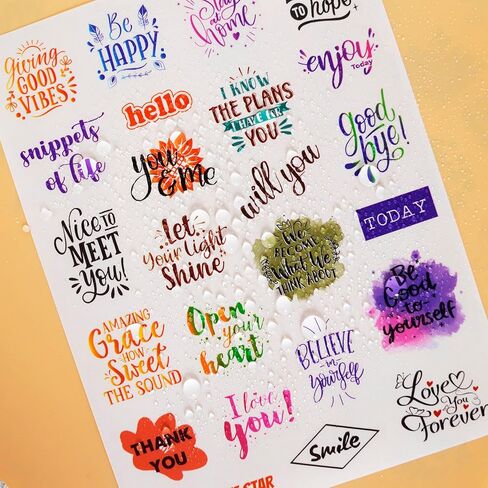 Giving
GOOD
VIBES
Be
HAPPY
Stay
at
home
TO
hope
enjoy
Today
snippets
of life
hello
I KNOW
THE PLANS
I HAVE FOR
YOU
Good
bye!
you
& me
will you
Nice TO
MEET
You!
Let
Your Light
Shine
We
BECOME
What We
THINK ABOUT
TODAY
Be
Good to
yourself
AMAZING
Grace
HOW
Sweet
THE SOUND
Open
your
heart
BELIEVE
in
yourself
I love
you!
Love
You
Forever
THANK
YOU
Smile
STAR